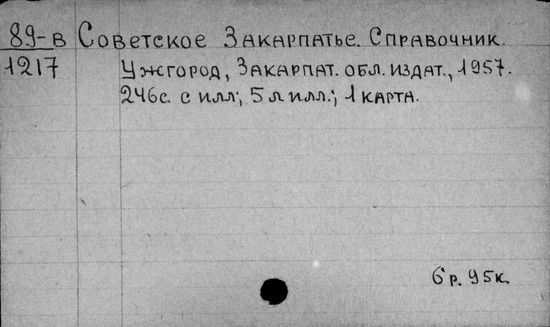 89-в Советское Закарпатье. Справочник.
1217 Ужгород, Закарпат. обл. издат., 1957.
246с. с илл; 5 л илл.; 1 карта.
6 р. 95к.